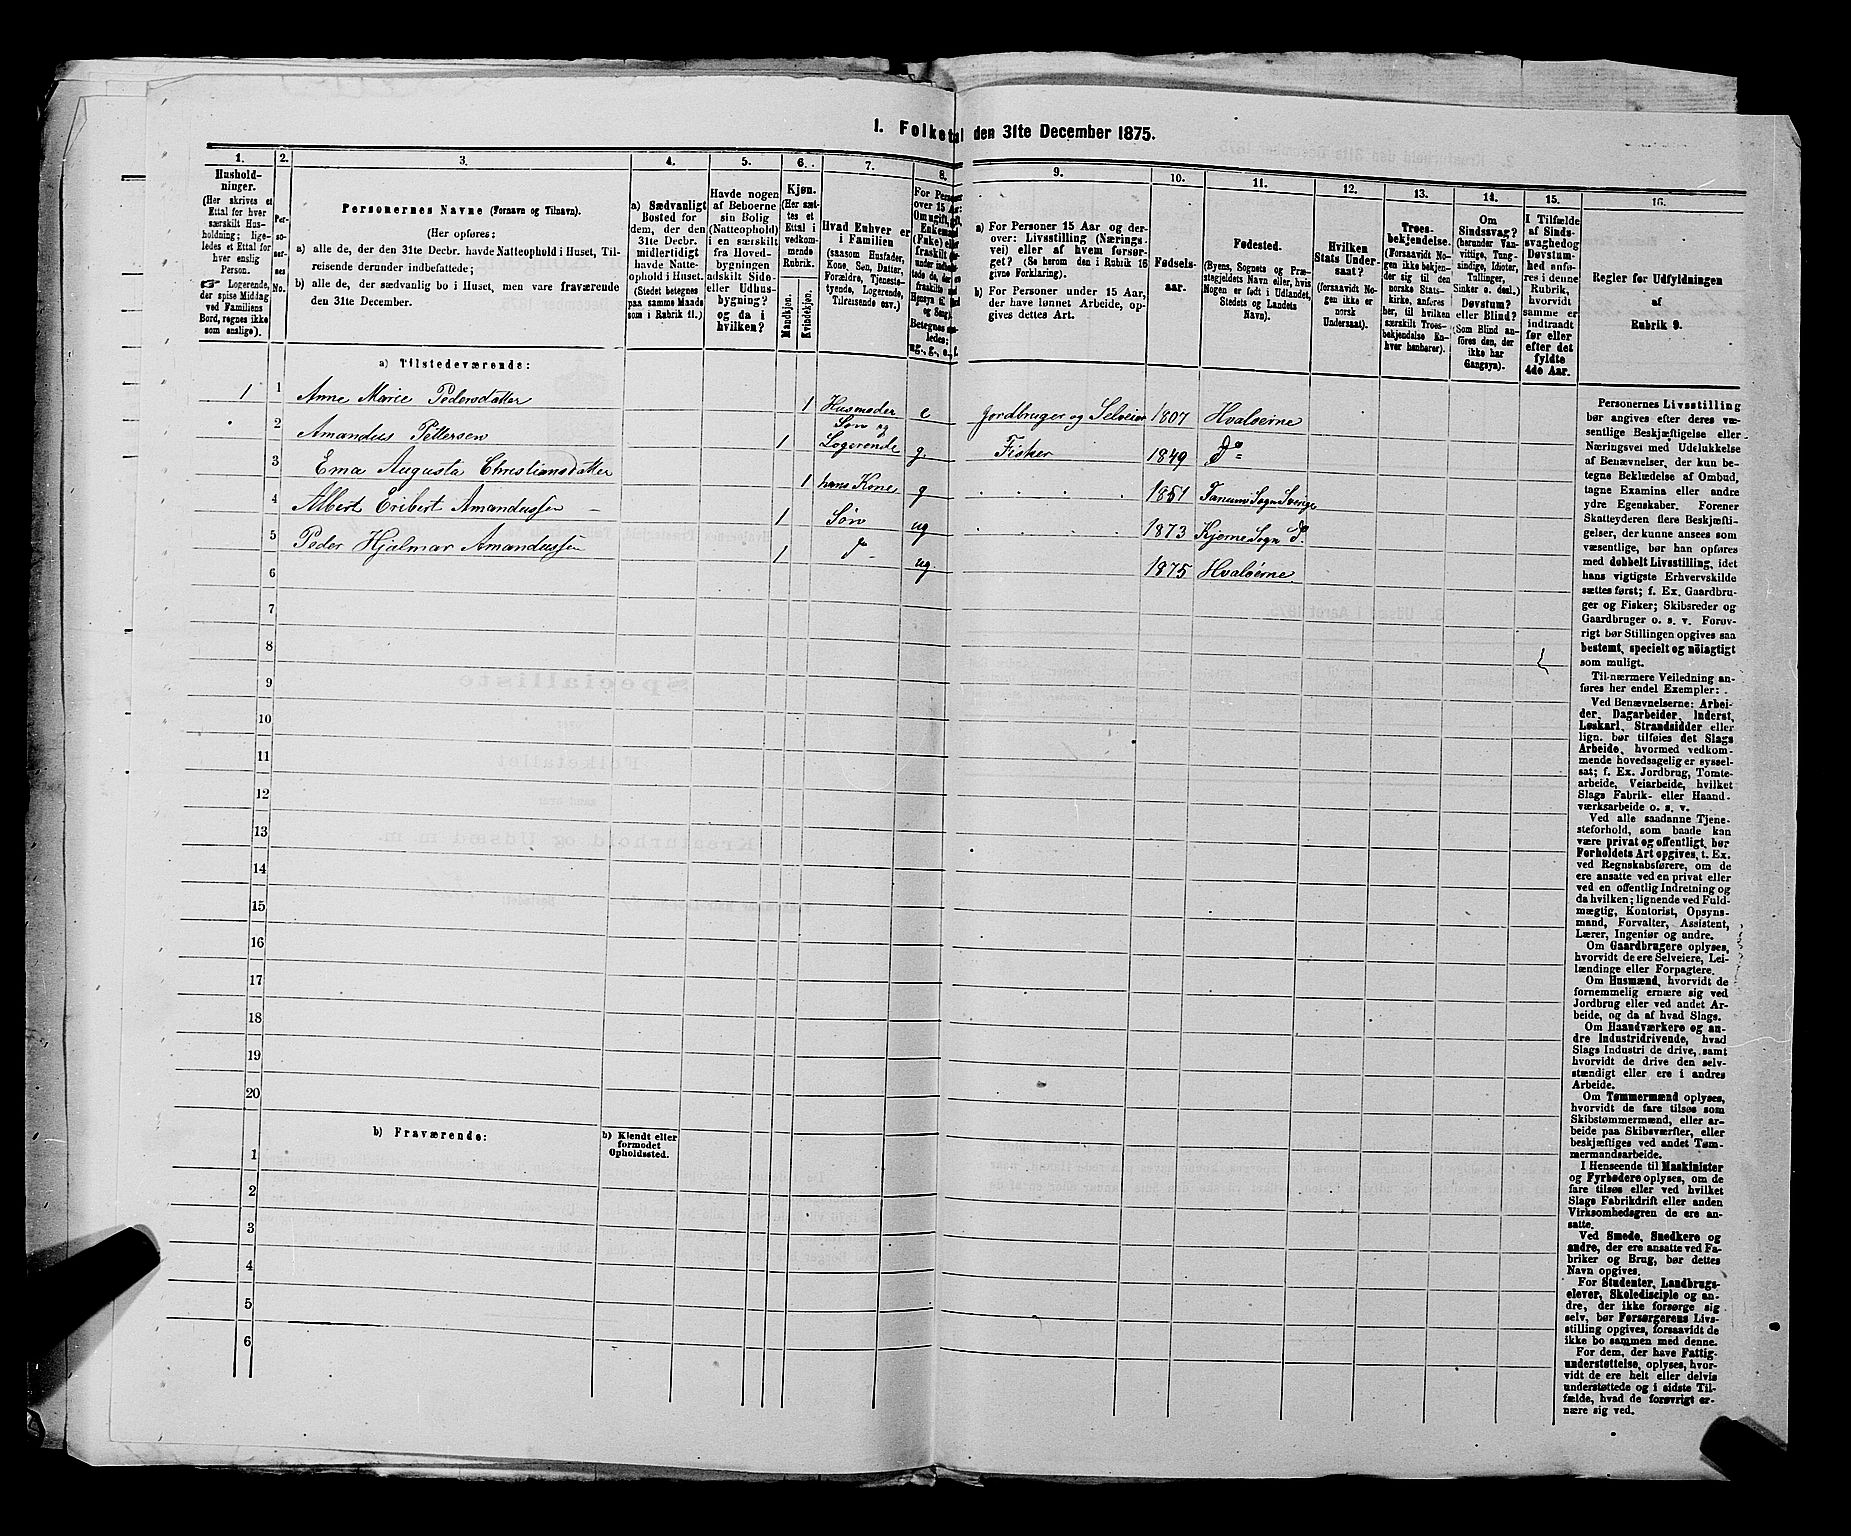 1. Folketal den 31te December 1875.
1. 2. 3. 4. 5. 6. 7. 8. 9. 10. 11. 12. 13. 14. 15. 16.
Hushold-
ninger.
(Her skrives et
Ettal for hver
særskilt Hus-
holdning; lige-
ledes et Ettal for
hver enslig
Person.
☞ Logerende,
der spise Middag
ved Familiens
Bord, regnes ikke
som enslige).
Per-
so-
ner-
nes
No.
Personernes Navne (Fornavn og Tilnavn).
(Her opføres:
a) alle de, der den 31te Decbr. havde Natteophold i Huset, Til-
reisende derunder indbefattede;
b) alle de, der sædvanlig bo i Huset, men vare fraværende
den 31te December.
a) Sædvanligt
Bosted for
dem, der den
31te Decbr.
midlertidigt
havde Natte-
ophold i Huset.
(Stedet betegnes
paa samme Maade
som i Rubrik 11.)
Havde nogen
af Beboerne
sin Bolig
(Natteophold)
i en særskilt
fra Hoved-
bygningen
adskilt Side-
eller Udhus-
bygning?
og da i
hvilken?
Kjøn.
(Her sæt-
tes et
Ettal i
vedkom-
mende
Rubrik.
Mandkjøn.
Kvindekjøn.
Hvad Enhver er
i Familien
(saasom Husfader,
Kone, Søn, Datter,
Forældre, Tjeneste-
tyende, Logerende,
Tilreisende osv.)
a) For Personer 15 Aar og der-
over: Livsstilling (Nærings-
vei) eller af hvem forsør-
get? (Se herom den i Rubrik 16
givne Forklaring).
b) For Personer under 15 Aar,
der have lønnet Arbeide, op-
gives dettes Art.
Fødsels-
aar.
Fødested.
(Byens, Sognets og Præ-
stegjeldets Navn eller, hvis
Nogen er født i Udlandet,
Stedets og Landets
Navn).
Hvilken
Stats Under-
saat?
(forsaavidt No-
gen ikke er
norsk
Undersaat).
Troes-
bekjendelse.
(Forsaavidt No-
gen ikke bekjen-
der sig til den
norske Stats-
kirke, anføres
her, til hvilken
særskilt Troes-
bekjendelse En-
hver henhører).
Om
Sindssvag?
(herunder Van-
vittige, Tung-
sindige, Idioter,
Tullinger,
Sinker o. desl.)
Døvstum?
eller Blind?
(Som Blind an-
føres den, der
ikke har
Gangsyn).
I Tilfælde
af Sinds-
svaghed og
Døvstum-
hed anfø-
res i denne
Rubrik,
hvorvidt
samme er
indtraadt
før eller
efter det
fyldte
4de Aar.
Regler for Udfyldningen
af
Rubrik 9.
a) Tilstedeværende:
1 1 Anne Marie Pedersdatter 1 Husmoder e Jordbruger og Selveier 1807 Hvaløerne
2 Amandus Pettersen 1 Søn og Logerende g Fisker 1849 do
3 Ema Augusta Christiansdatter 1 hans Kone g 1851 Tanums Sogn Sverige
4 Albert Eribert Amandussen 1 Søn ug 1873 Kjerne Sogn do
5 Peder Hjalmar Amandussen 1 do ug 1875 Hvaløerne
6
7
8
9
10
11
12
13
14
15
16
17
18
19
20
b) Fraværende:
b) Kjendt eller
formodet
Opholdssted.
1
2
3
4
5
6
Personernes Livsstilling
bør angives efter deres væ-
sentlige Beskjæftigelse eller
Næringsvei med Udelukkelse
af Benævnelser, der kun be-
tegne Beklædelse af Ombud,
tagne Examina eller andre
ydre Egenskaber. Forener
Skatteyderen flere Beskjæfti-
gelser, der kunne ansees som
væsentlige, bør han opføres
med dobbelt Livsstilling, idet
hans vigtigste Erhvervskilde
sættes først; f. Ex. Gaardbru-
ger og Fisker; Skibsreder og
Gaardbruger o. s. v. Forøv-
rigt bør Stillingen opgives saa
bestemt, specielt og nöiagtigt
som muligt.
Til nærmere Veiledning an-
føres her endel Exempler:
Ved Benævnelserne: Arbei-
der, Dagarbeider, Inderst,
Løskarl, Strandsidder eller
lign. bør tilføies det Slags
Arbeide, hvormed vedkom-
mende hovedsagelig er syssel-
sat; f. Ex. Jordbrug, Tomte-
arbeide, Veiarbeide, hvilket
Slags Fabrik- eller Haand-
værksarbeide o. s. v.
Ved alle saadanne Tjene-
steforhold, som baade kan
være privat og offentligt, bør
Forholdets Art opgives, t. Ex.
ved Regnskabsførere, om de
ere ansatte ved en privat eller
ved en offentlig Indretning og
da hvilken; lignende ved Fuld-
mægtig, Kontorist, Opsyns-
mand, Forvalter, Assistent,
Lærer, Ingeniør og andre.
Om Gaardbrugere oplyses,
hvorvidt de ere Selveiere, Lei-
lændinge eller Forpagtere.
Om Husmænd, hvorvidt de
fornemmelig ernære sig ved
Jordbrug eller ved andet Ar-
beide, og da af hvad Slags.
Om Haandværkere og an-
dre Industridrivende, hvad
Slags Industri de drive, samt
hvorvidt de drive den selv-
stændigt eller ere i andres
Arbeide.
Om Tømmermænd oplyses,
hvorvidt de fare tilsøs som
Skibstømmermænd, eller ar-
beide paa Skibsværfter, eller
beskjæftiges ved andet Tøm-
mermandsarbeide.
I Henseende til Maskinister
og Fyrbødere oplyses, om de
fare tilsøs eller ved hvilket
Slags Fabrikdrift eller anden
Virksomhedsgren de ere an-
satte.
Ved Smede, Snedkere og
andre, der ere ansatte ved Fa-
briker og Brug, bør dettes
Navn opgives.
For Studenter, Landbrugs-
elever, Skoledisciple og an-
dre, der ikke forsørge sig
selv, bør Forsørgerens Livs-
stilling opgives, forsaavidt de
ikke bo sammen med denne.
For dem, der have Fattig-
understøttelse, oplyses, hvor-
vidt de ere helt eller delvis
understøttede og i sidste Til-
fælde, hvad de forøvrigt er-
nære sig ved.